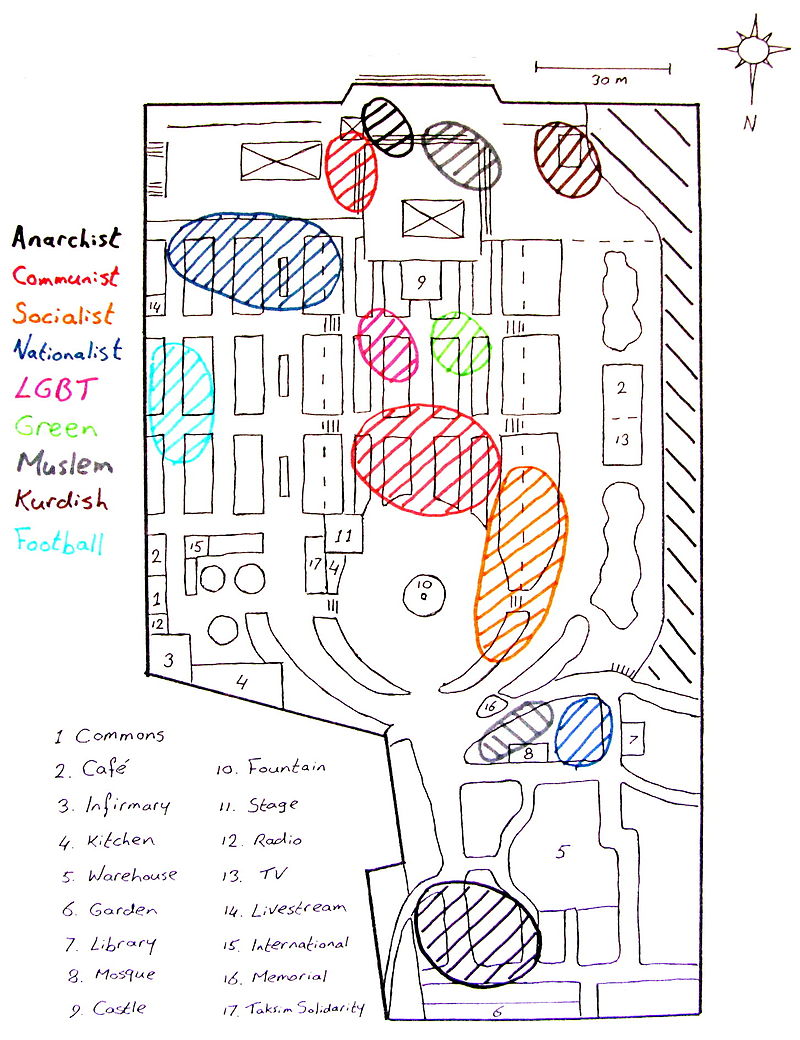 30 m
N
Anarchist
Communist
Socialist
Nationalist
LGBT
Green
Muslem
Kurdish
Football
9
14
2
13
11
15
17
4
10
2
1
12
3
4
16
8
7
5
6
1 Commons
2. Café
3. Infirmary
4. Kitchen
5. Warehouse
6. Garden
7. Library
8. Mosque
9. Castle
10. Fountain
11. Stage
12. Radio
13. TV
14. Livestream
15. International
16. Memorial
17. Taksim Solidarity